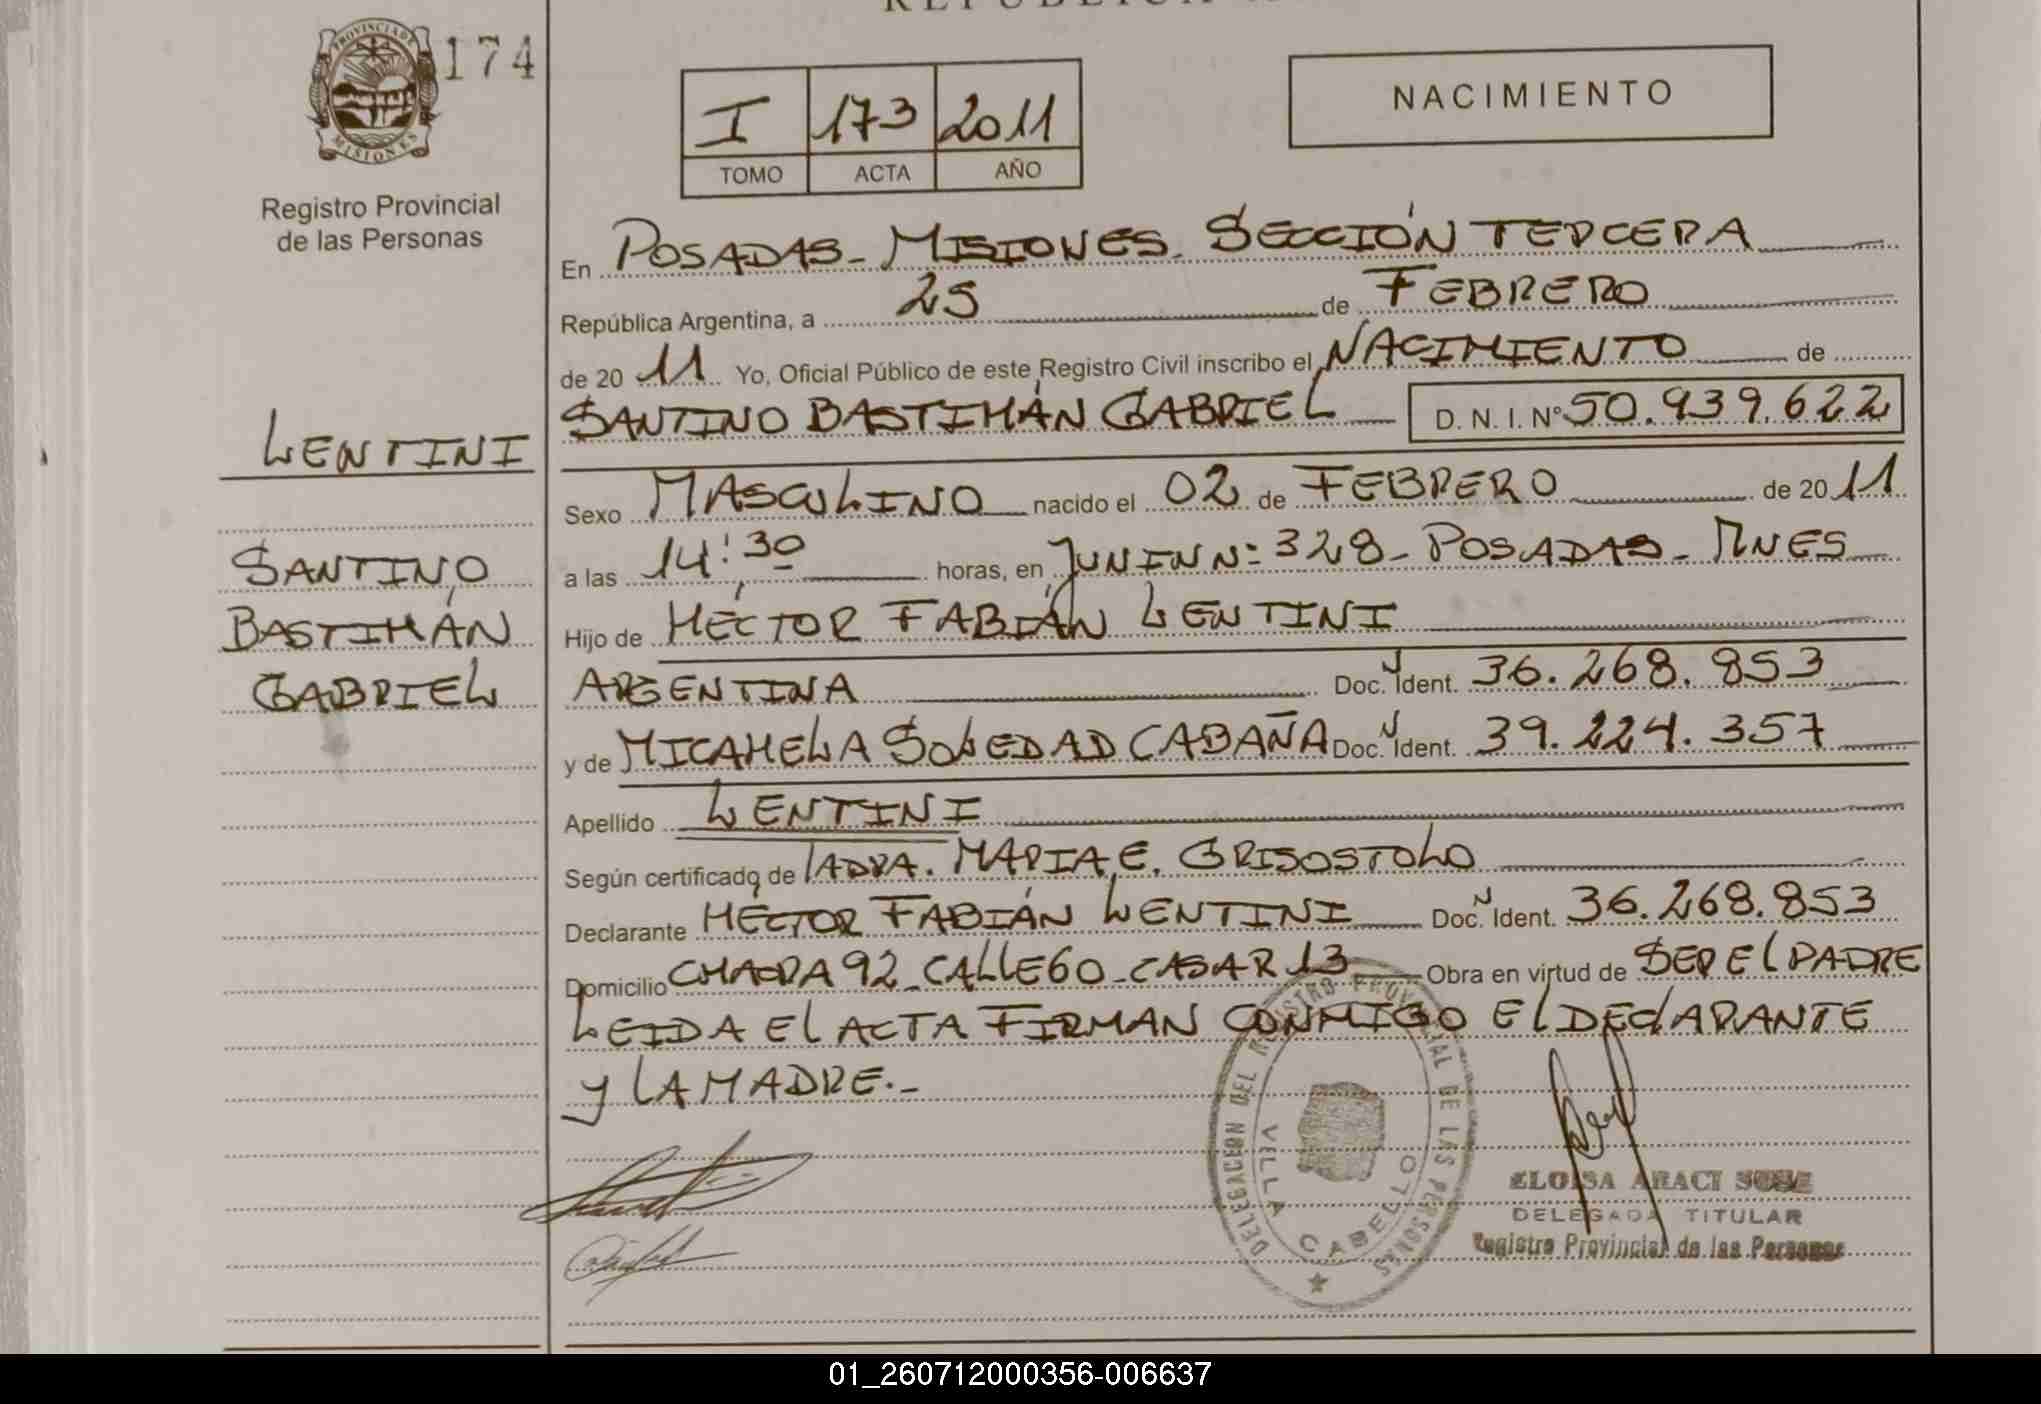 REPÚBLICA
PROVINCIA DE MISIONES
174
Registro Provincial
de las Personas
I 173 2011
TOMO ACTA AÑO
NACIMIENTO
En POSADAS - MISIONES - SECCIÓN TERCERA
República Argentina, a 25 de FEBRERO
de 20 11 Yo, Oficial Público de este Registro Civil inscribo el NACIMIENTO de
SANTINO BASTIHÁN GABRIEL D. N. I. N° 50.939.622
LENTINI
SANTINO
BASTIHÁN
GABRIEL
Sexo MASCULINO nacido el 02 de FEBRERO de 20 11
a las 14:30 horas, en JUNIN Nº 328 - POSADAS - MNES
Hijo de HÉCTOR FABIÁN LENTINI
ARGENTINA Doc. Ident. 36.268.853
y de MICAHELA SOLEDAD CABAÑA Doc. Ident. 39.224.357
Apellido LENTINI
Según certificado de MARIA E. GRISOSTOLO
Declarante HÉCTOR FABIÁN LENTINI Doc. Ident. 36.268.853
Domicilio CHACRA 92 - CALLE 60 - CASA R 13 Obra en virtud de SER El PADRE
LEIDA El ACTA FIRMAN CONMIGO El DEClARANTE
y lA MADRE.-
DELEGACION DEL REGISTRO PROVINCIAL DE LAS PERSONAS
VILLA CABELLO
ELOISA ARACI
DELEGADA TITULAR
Registro Provincial de las Personas
01_260712000356-006637